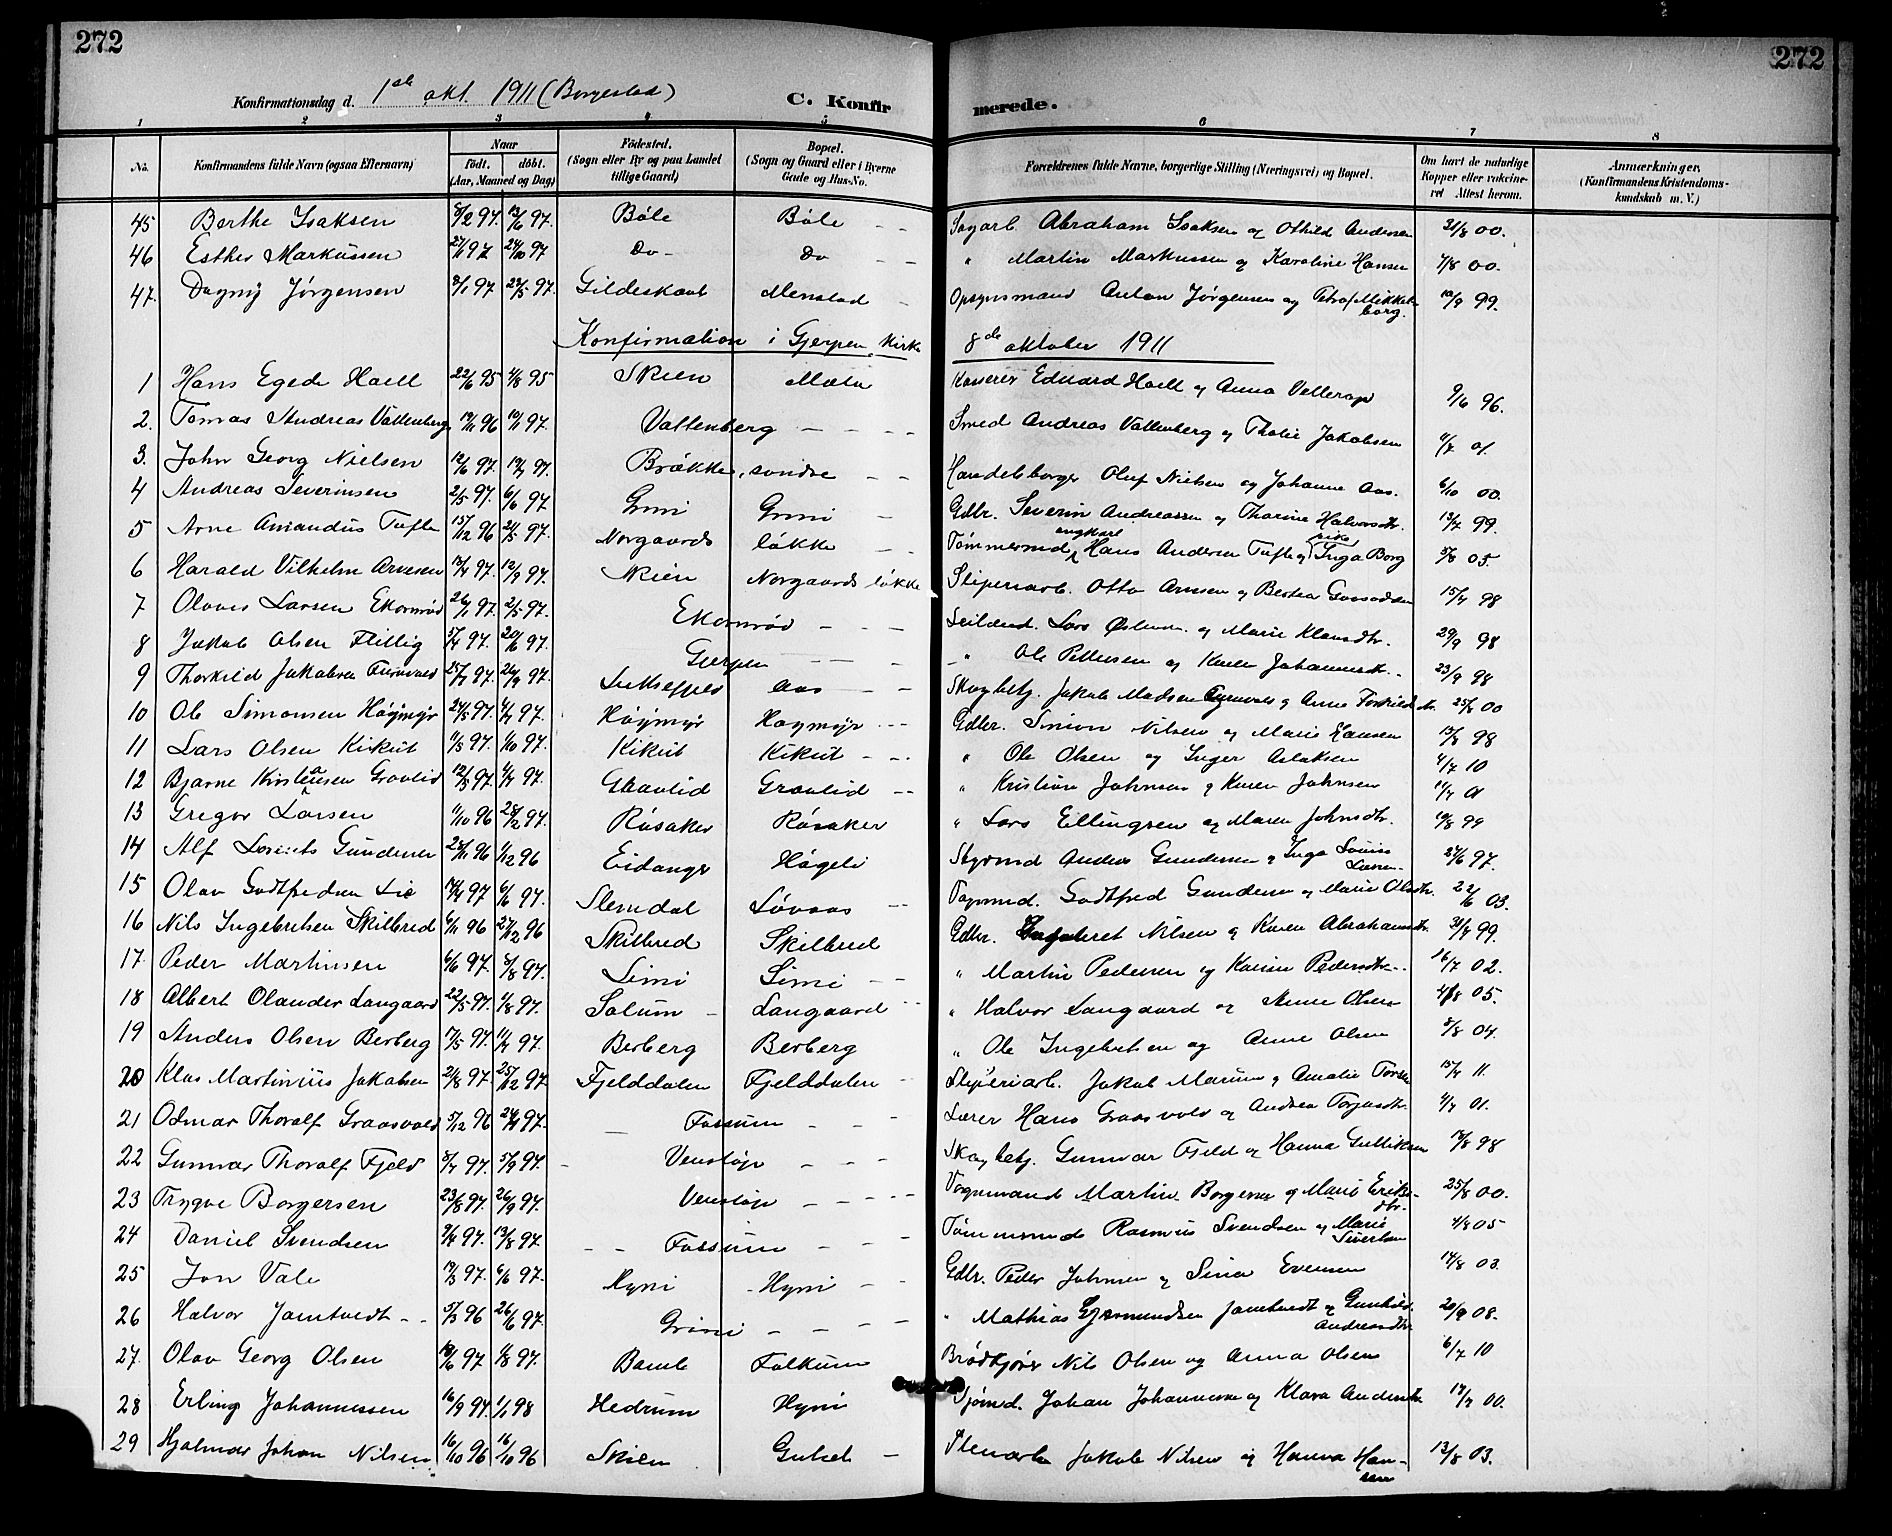 272
272
Konfirmationsdag d. 1ste okt. 1911 (Borgestad) C. Konfirmerede.
1 2 3 4 5 6 7 8
No. Konfirmandens fulde Navn (ogsaa Efternavn) Naar født. døbt. (Aar, Maaned og Dag) Fødested. (Sogn eller By og paa Landet tillige Gaard) Bopæl. (Sogn og Gaard eller i Byerne Gade og Hus-No. Forældrenes fulde Navne, borgerlige Stilling (Næringsvei) og Bopæl. Om havt de naturlige Kopper eller vakcineret Attest herom. Anmærkninger. (Konfirmandens Kristendomskundskab m. V.)
45 Berthe Isaksen 8/2 97. 13/6 97. Bøle Bøle Sagarb. Abraham Isaksen og Othild Andersen 31/8 00.
46 Esther Markussen 27/1 97 24/10 97 Do Do " Martin Markussen og Karoline Hansen 7/8 00.
47. Dagny Jørgensen 2/1 97 22/5 97. Gildeskaal Menstad Opsynsmand Anton Jørgensen og Petra Mikkelborg. 10/9 99.
Konfirmation i Gjerpen Kirke 8de oktober 1911
1 Hans Egede Hoell 22/6 95 4/8 95 Skien Mæla Kasserer Edvard Hoell og Anna Vellerop 9/6 96.
2. Tomas Andreas Vattenberg 19/11 96 10/1 97. Vattenberg Smed Andreas Vattenberg og Thalie Jakobsen 4/7 01.
3. John Georg Nielsen 12/6 97. Brække, søndre Handelsborger Oluf Nielsen og Johanne Aas. 6/10 00.
4 Andreas Severinsen 2/5 97. 6/6 97 Grini Grini Gdbr. Severin Andreassen og Thorine Halvorsdtr. 13/7 99.
5 Arne Amandus Tufte 15/12 96 24/5 97. Norgaards løkke Tømmermd. Hans Andersen Tufte og Inga Borg 3/8 05.
6 Harald Vilhelm Arnesen 13/4 97. 12/9 97. Skien Norgaards løkke Sliperiarb. Otto Arnesen og Bertea 15/7 98
7 Olaves Larsen Ekornrød 26/1 97. 2/5 97. Ekornrød Leilænd. Lars og Marie Klausdtr. 29/9 98
8 Jakob Olsen Flittig 3/4 97. 20/6 97. Gjerpen " Ole Pettersen og Karen Johannesdtr. 23/9 98
9 Thorkild Jakobsen 25/7 97. 26/9 97. Luksefjeld Aas Skogbetj. Jakob Madsen og Anne Torkildsdtr. 25/8 00
10 Ole Simonsen Høgmyr 24/5 97. 4/7 97. Høgmyr Høgmyr Gdbr. Simon Nilsen og Maria Hansen 13/8 98
11 Lars Olsen Kikut 11/5 97. 1/10 97. Kikut Kikut " Ole Olsen og Inger Aslaksen 4/7 10
12 Bjarne Kristiansen Gravlid 12/3 97. 4/7 97. Gravlid Gravlid " Kristian Johnsen og Karen Johnsen 11/7 01
13 Gregor Larsen 11/10 96 28/2 97. Røsaker Røsaker " Lars Ellingsen og Maren Johnsdtr. 19/8 99
14 Alf Lorents Gundersen 25/11 96 1/12 96 Eidanger Høgeli Styrmd Anders Gundersen og Inga Lovise Larsen 27/6 97.
15 Olav Godtfredsen Lie 17/4 97 6/6 97. Slemdal Løvaas Vognmd. Godtfred Gundersen og Marie Olsdtr. 22/6 03.
16 Nils Ingebretsen Skilbred 6/11 96 27/12 96 Skilbred Skilbred Gdbr. Ingebret Nilsen og Karen Abrahamsdtr. 31/7 99.
17. Peder Martinsen 6/6 97. 8/8 97. Limi Limi " Martin Pedersen og Karine Pedersdtr. 16/7 02.
18 Albert Olander Langaard 22/5 97. 1/8 97. Solum Langaard " Halvor Langaard og Anne Olsen 4/8 05.
19 Anders Olsen Berberg 17/5 97. 11/7 97. Berberg Berberg " Ole Ingebretsen og Anne Olsen 3/8 04.
20 Klas Martinius Jakobsen 2/8 97. 25/12 97. Fjelddalen Fjelddalen Sliperiarb. Jakob og Amalie 15/7 11.
21 Odmar Thoralf Graasvold 5/12 96 24/4 97. Fossum Lærer Hans Graasvold og Andrea Torjusdtr. 4/7 01.
22 Gunnar Thoralf Fjeld 3/7 97. 5/9 97. Venstøp Skogbetj. Gunnar Fjeld og Hanna Gulliksen 17/8 98
23 Trygve Borgersen 23/6 97. 26/9 97. Venstøp Vognmand Martin Borgersen og Maria Eriksdtr. 25/8 00.
24 Daniel Svendsen 9/4 97. 13/8 97. Fossum Tømmermd Rasmus Svendsen og Marie Sivertsen 4/8 05
25 Jon Vale 19/3 97. 6/6 97. Hyni Hyni Gdbr. Peder Johnsen og Sina Evensen 14/8 03.
26 Halvor Jamtvedt 5/3 96 26/6 97. Grini " Mathias Gjermundsen Jamtvedt og Gunhild Andreasdtr. 20/9 08.
27. Olav Georg Olsen 18/6 97 1/8 97. Bamle Falkum Brødkjører Nils Olsen og Anna Olsen 6/7 10
28 Erling Johannessen 16/9 97. 1/1 98 Hedrum Hyni Sjømd. Johan Johannessen og Klara Andersdtr. 14/7 00.
29 Hjalmar Johan Nilsen 16/10 96 16/10 96 Skien Gulset Stenarb. Jakob Nilsen og Hanna Hansen 13/8 03.